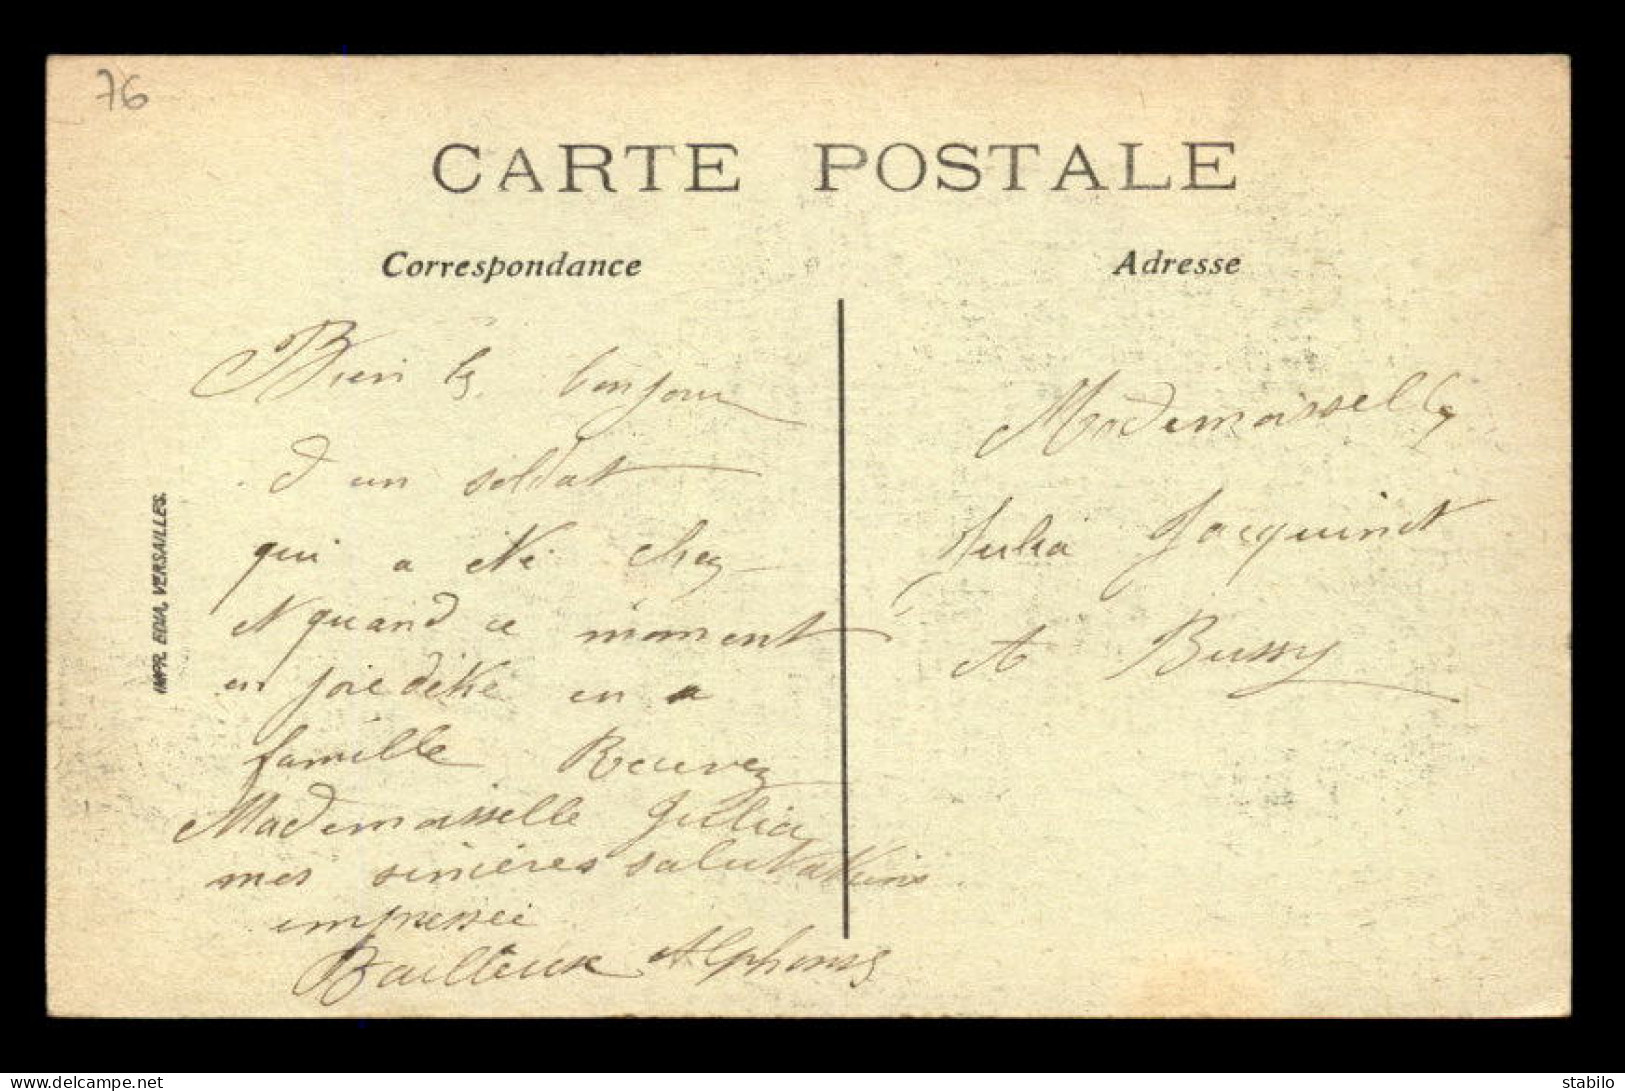 76
CARTE POSTALE
Correspondance
Adresse
Bien le bonjour
d un soldat
qui a été chez
et quand ce moment
en en a
famille
Mademoisselle Julia
mes sinières salutations
empressée
Alphonse
Mademoisselle
Julia Jacquinet
A Bussy
IMPR. EDIA, VERSAILLES.
www.delcampe.net
stabilo